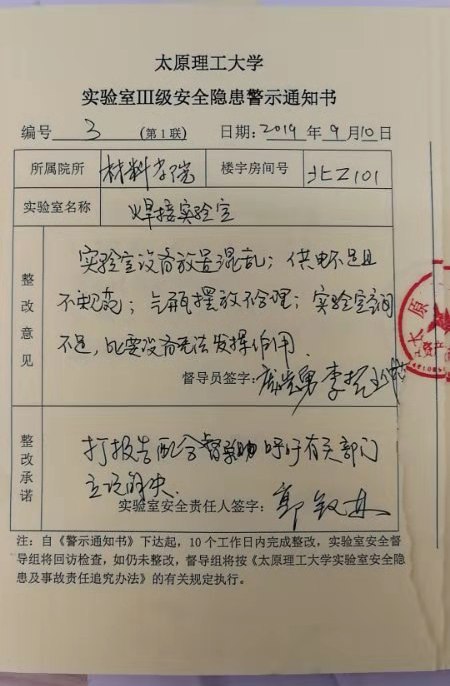 太原理工大学
实验室III级安全隐患警示通知书
编号 3 (第1联) 日期: 2019 年 9 月 10 日
所属院所 材料学院 楼宇房间号 北Z101
实验室名称 焊接实验室
整改意见
实验室设备放置混乱；供电不足且
不规范；气瓶摆放不合理；实验室空间
不足，必要设备无法发挥作用.
督导员签字:
整改承诺
打报告配合督导组呼吁有关部门
实验室安全责任人签字:
注：自《警示通知书》下达起，10个工作日内完成整改，实验室安全督
导组将回访检查，如仍未整改，督导组将按《太原理工大学实验室安全隐
患及事故责任追究办法》的有关规定执行。